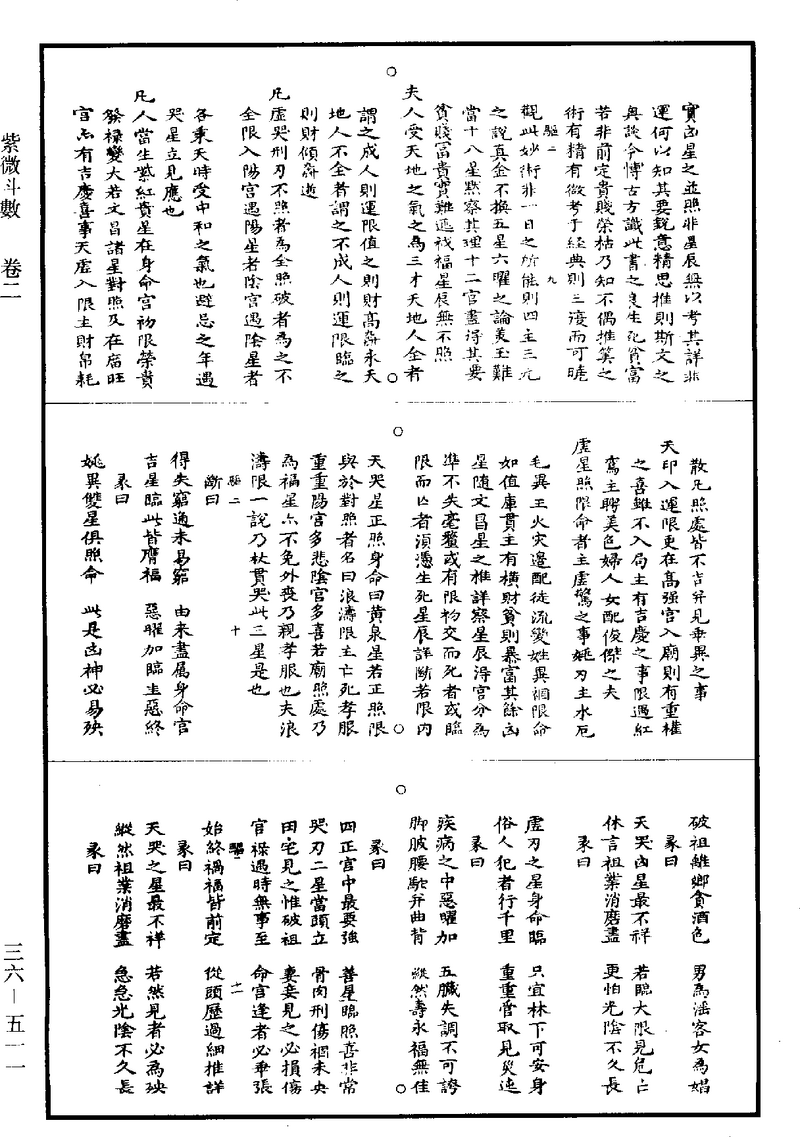 紫微斗數　卷二
三六—五一一
實凶星之並照非星辰無以考其詳非
運何以知其要銳意精思推則斯文之
奥談今博古方識此書之良生死貧富
若非前定貴賤榮枯乃知不偶推筭之
術有精有微考于經典則三復而可曉
駈二　九
觀此妙術非一日之所能則四主三元
之說真金不換五星六曜之論美玉難
當十八星熟察其理十二官盡得其要
貧賤冨貴實難逃我福星辰無不照
夫人受天地之氣之為三才天地人全者
謂之成人則運限值之則財髙壽永天
地人不全者謂之不成人則運限臨之
則財傾壽逝
凡虛哭刑刃不照者為全照破者為之不
全限入陽宮遇陽星者陰宮遇陰星者
各乘天時受中和之氣也避忌之年遇
哭星立見應也
凡人當生紫紅貴星在身命宮初限榮貴
發祿變大若文昌諸星對照及在廟旺
宮亦有吉慶喜事天虛入限主財帛耗
散凡照處皆不吉并見乖異之事
天印入運限更在髙強宮入廟則有重權
之喜雖不入局主有吉慶之事限遇紅
鸞主聘美色婦人女配俊傑之夫
虛星照限命者主虛驚之事姚刃主水厄
毛異主火災邉配徒流變姓異徊限命
如值庫貫主有横財貧則暴富其餘凶
星隨文昌星之推詳察星辰淂宮分為
準不失毫釐或有限初交而死者或臨
限而亡者須憑生死星辰詳断若限内
天哭星正照身命曰黄泉星若正照限
與於對照者名曰浪濤限主亡死孝服
重重陽宮多悲陰宮多喜若廟照處乃
為福星亦不免外喪乃親孝服也夫浪
濤限一說乃杖貫哭此三星是也
駈二　十
断曰
得失窮通未易窮　由来盡属身命宮
吉星臨此皆膺福　惡曜加臨主惡終
彖曰
姚異雙星俱照命　此是凶神必易殃
破祖離郷貪酒色　男為滛客女為娼
彖曰
天哭凶星最不祥　若臨大限見危亡
休言祖業消磨盡　更怕光陰不久長
彖曰
虛刃之星身命臨　只宜林下可安身
俗人犯者行千里　重重管取見災迍
彖曰
疾病之中惡曜加　五臟失調不可誇
脚跛腰駝并曲背　縱然壽永福無佳
彖曰
四正宮中最要強　善星臨照喜非常
哭刃二星當頭立　骨肉刑傷禍未央
田宅見之惟破祖　妻妾見之必損傷
官祿遇時無事至　命宮逢者必乖張
駈二　十一
始終禍福皆前定　從頭歴過細推詳
彖曰
天哭之星最不祥　若然見者必為殃
縱然祖業消磨盡　急急光陰不久長
彖曰